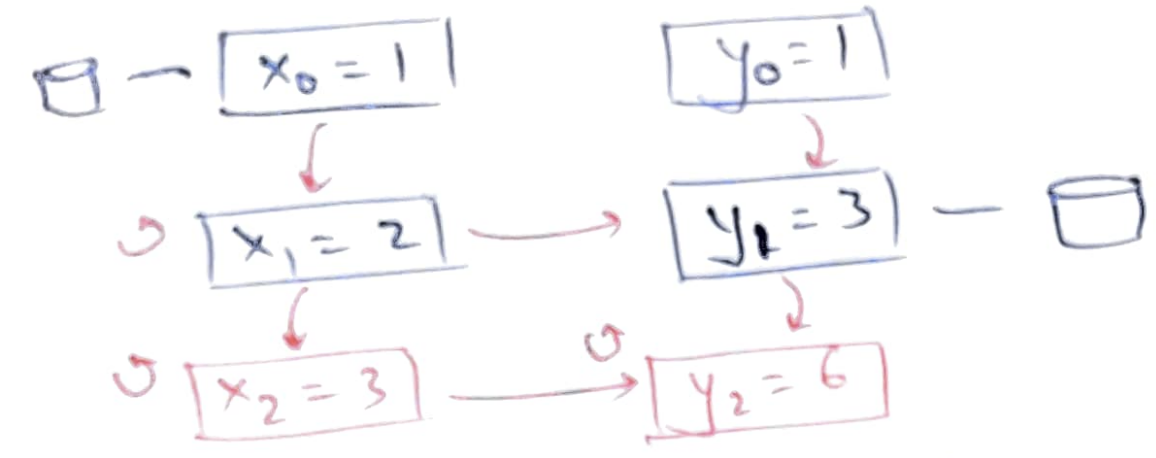 x₀ = 1
y₀ = 1
x₁ = 2
y₁ = 3
x₂ = 3
y₂ = 6